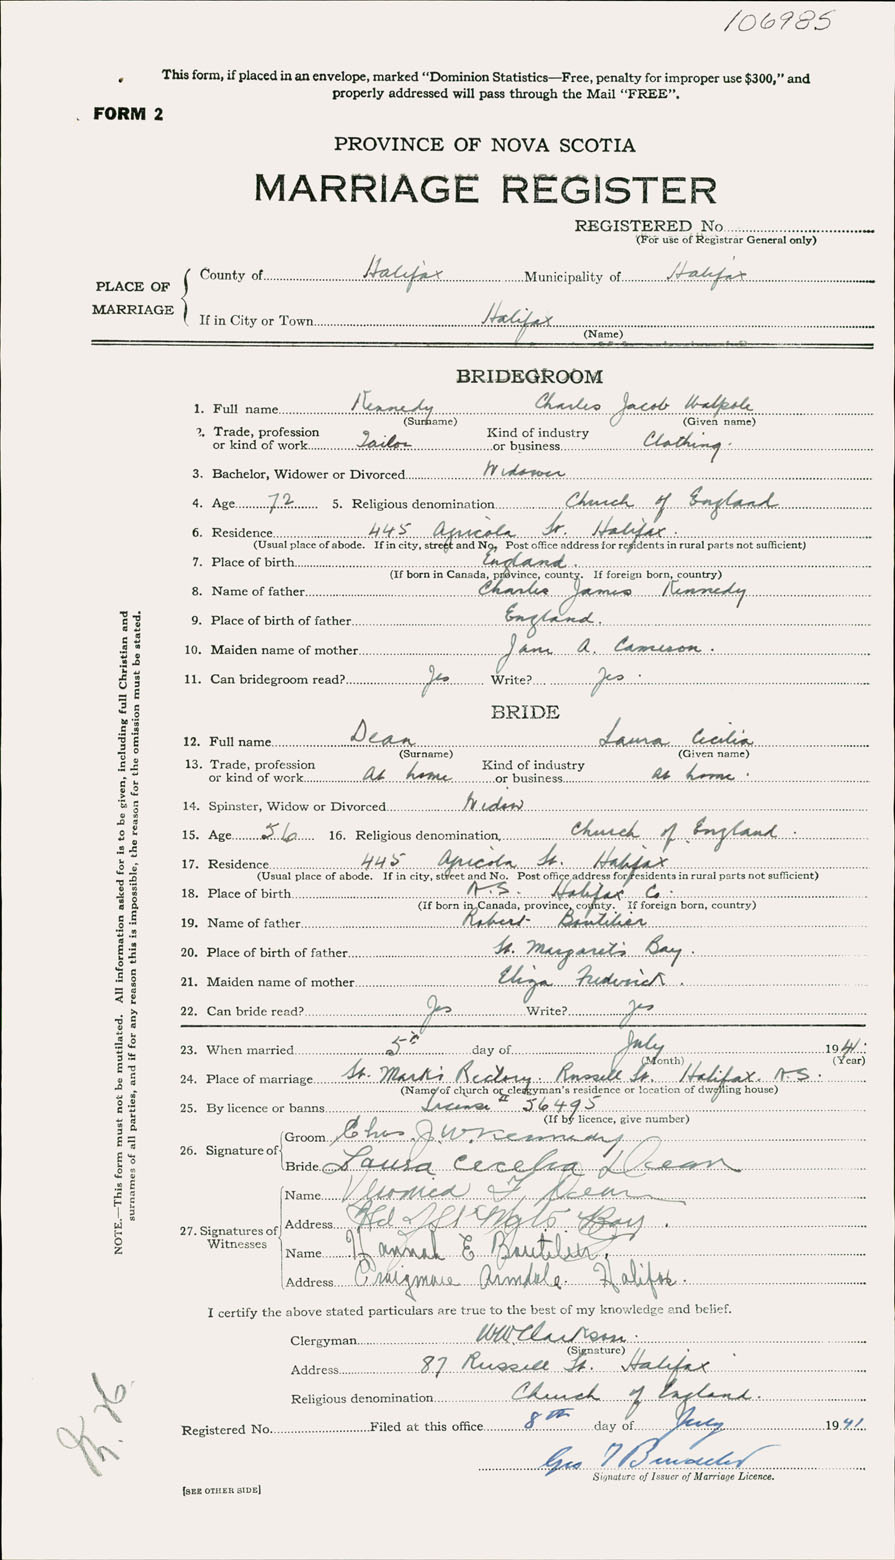 106985
This form, if placed in an envelope, marked "Dominion Statistics—Free, penalty for improper use $300," and
properly addressed will pass through the Mail "FREE".
FORM 2
PROVINCE OF NOVA SCOTIA
MARRIAGE REGISTER
REGISTERED No.
(For use of Registrar General only)
PLACE OF MARRIAGE
County of Halifax Municipality of Halifax
If in City or Town Halifax
(Name)
BRIDEGROOM
1. Full name Kennedy Charles Jacob Walpole
(Surname) (Given name)
2. Trade, profession or kind of work Tailor Kind of industry or business Clothing.
3. Bachelor, Widower or Divorced Widower
4. Age 72 5. Religious denomination Church of England
6. Residence 445 Agricola St. Halifax.
(Usual place of abode. If in city, street and No. Post office address for residents in rural parts not sufficient)
7. Place of birth England.
(If born in Canada, province, county. If foreign born, country)
8. Name of father Charles James Kennedy
9. Place of birth of father England.
10. Maiden name of mother Jane A. Cameron.
11. Can bridegroom read? Yes Write? Yes.
BRIDE
12. Full name Dean Laura Cecilia
(Surname) (Given name)
13. Trade, profession or kind of work At home Kind of industry or business at home.
14. Spinster, Widow or Divorced Widow
15. Age 56 16. Religious denomination Church of England.
17. Residence 445 Agricola St. Halifax
(Usual place of abode. If in city, street and No. Post office address for residents in rural parts not sufficient)
18. Place of birth N.S. Halifax Co.
(If born in Canada, province, county. If foreign born, country)
19. Name of father Robert Boutilier
20. Place of birth of father St. Margaret's Bay.
21. Maiden name of mother Eliza Frederick.
22. Can bride read? Yes Write? Yes
23. When married 5th day of July 1941.
(Month) (Year)
24. Place of marriage St. Mark's Rectory. Russell St. Halifax. N.S.
(Name of church or clergyman's residence or location of dwelling house)
25. By licence or banns License # 56495
(If by licence, give number)
26. Signature of
Groom Chas. J. W. Kennedy
Bride Laura Cecelia Dean
27. Signatures of Witnesses
Name Dean
Address Bay.
Name Hannah E Boutilier.
Address Craigmore Armdale. Halifax.
I certify the above stated particulars are true to the best of my knowledge and belief.
Clergyman WW Clarkson.
(Signature)
Address 87 Russell St. Halifax
Religious denomination Church of England.
Registered No. Filed at this office 8th day of July 1941
Geo
Signature of Issuer of Marriage Licence.
[SEE OTHER SIDE]
NOTE.—This form must not be mutilated. All information asked for is to be given, including full Christian and
surnames of all parties, and if for any reason this is impossible, the reason for the omission must be stated.